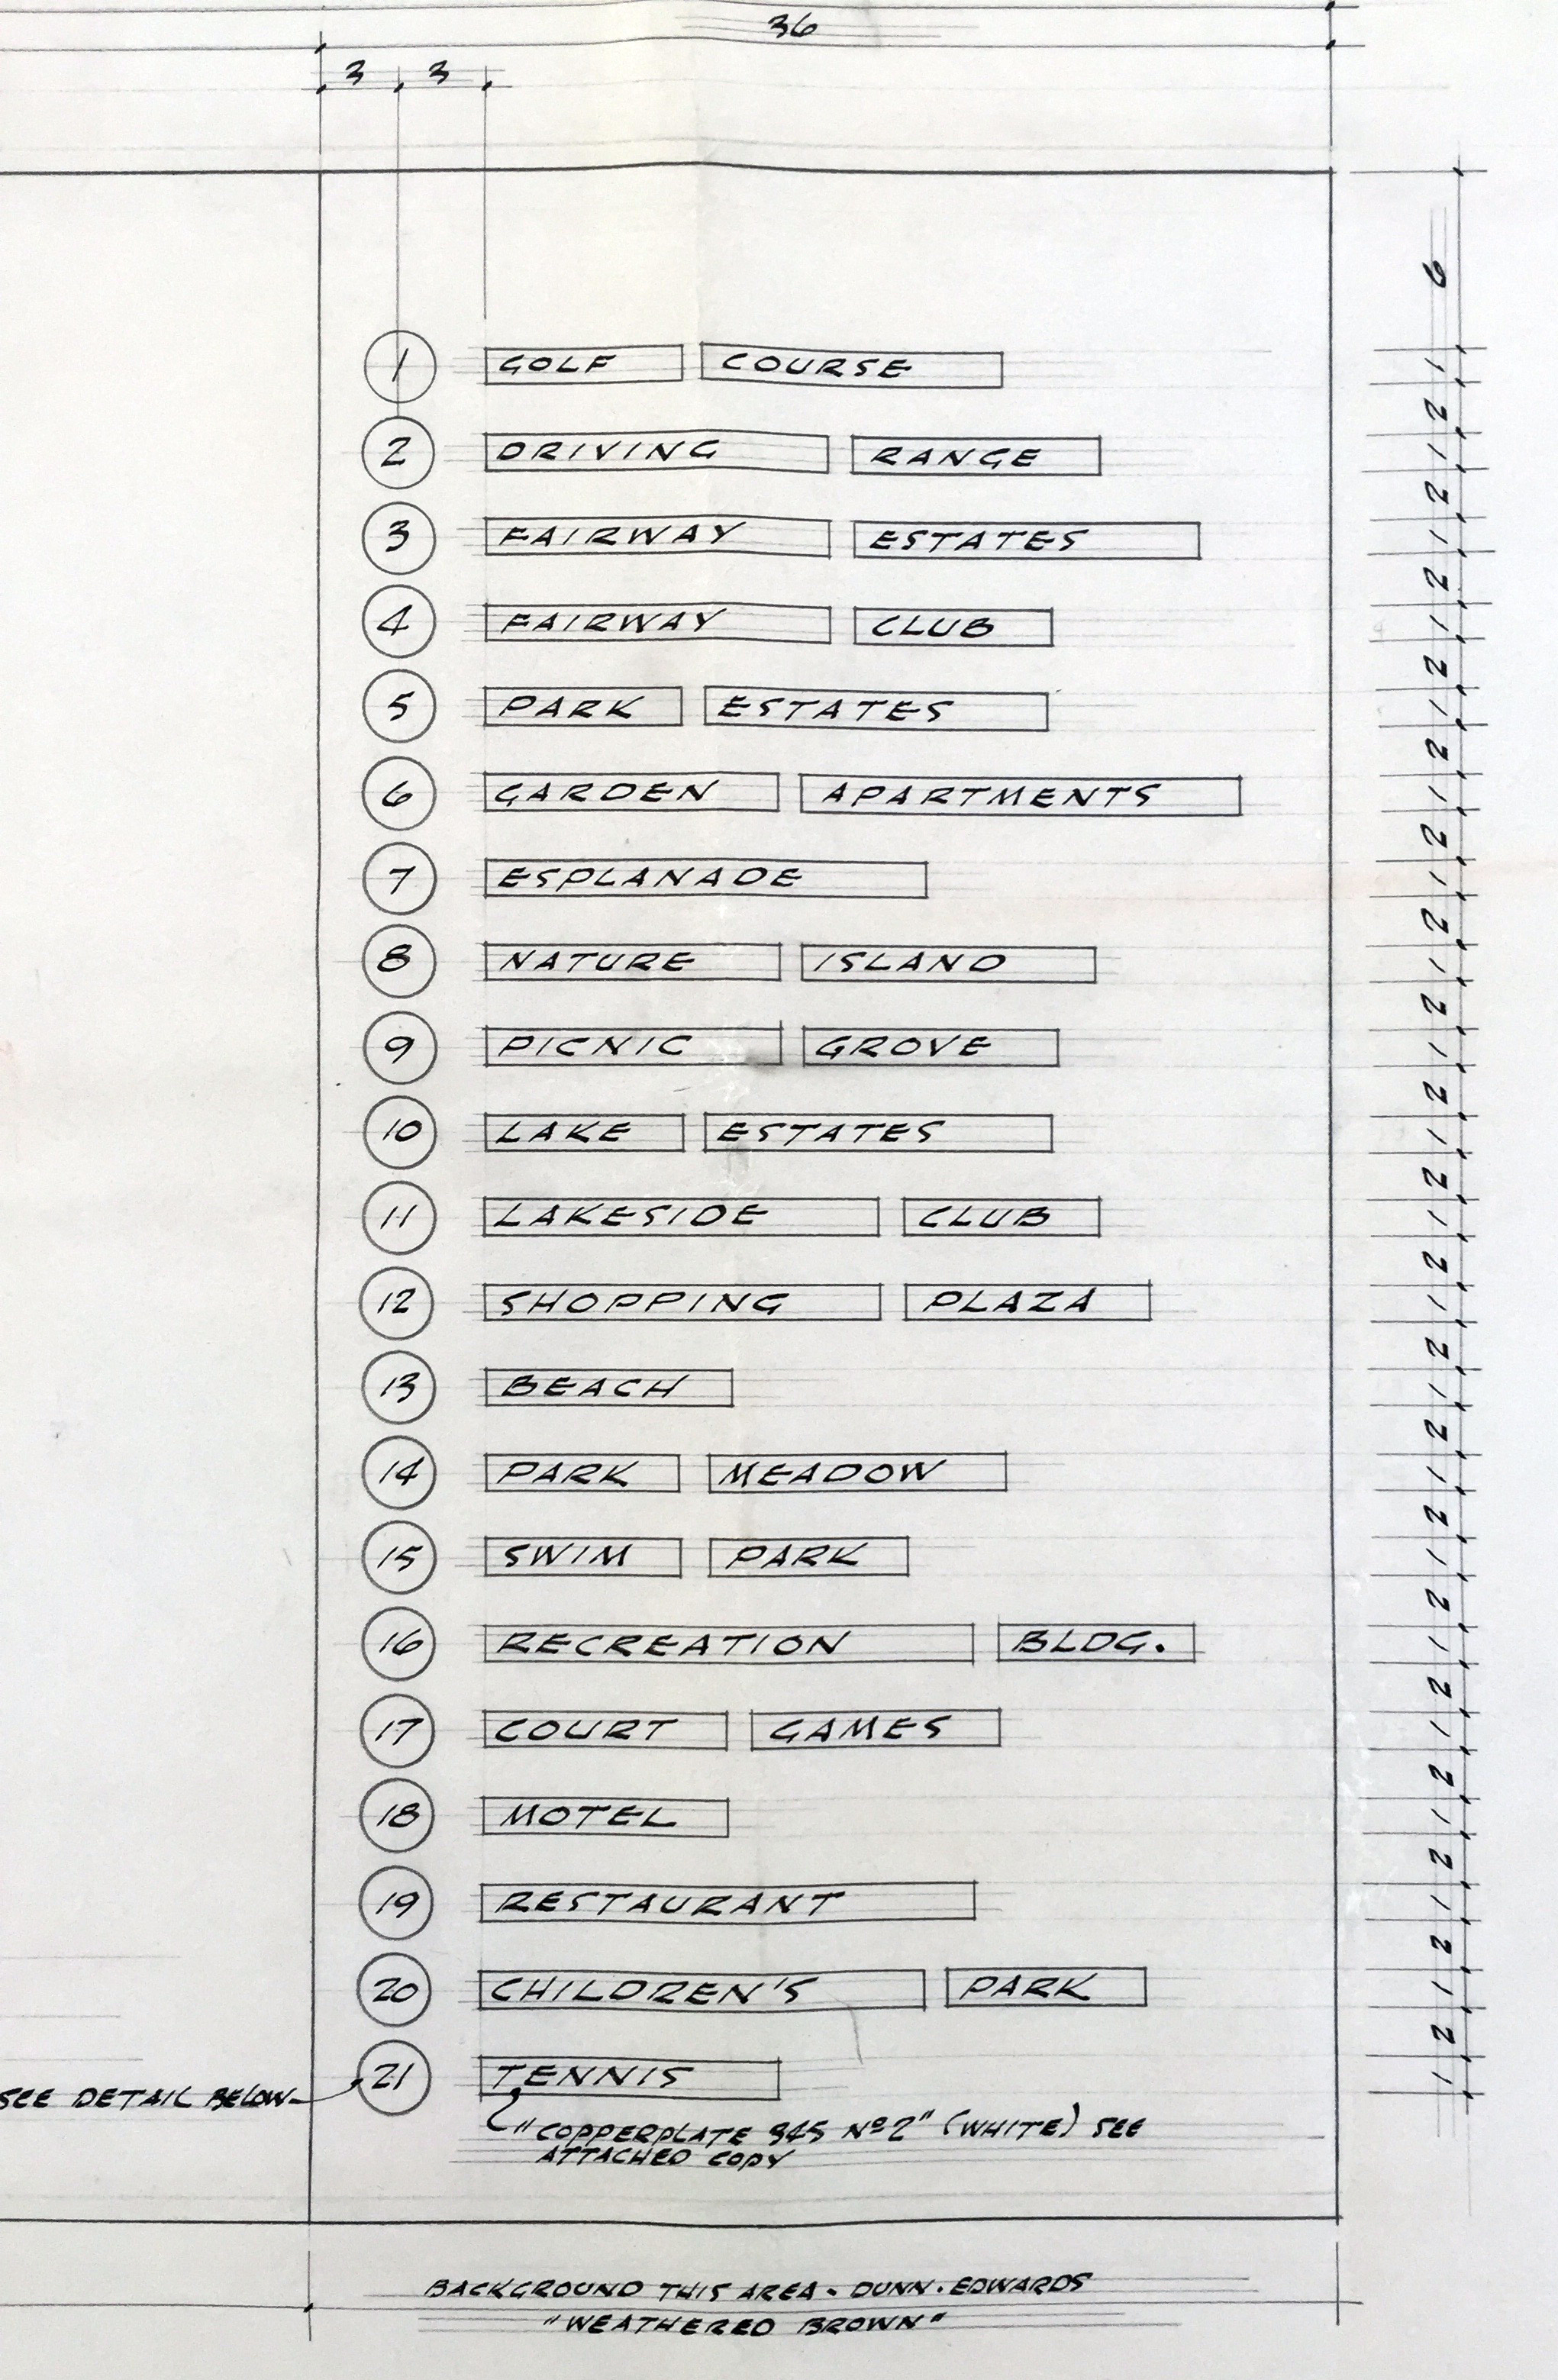 36
3 3
6
1 GOLF COURSE
2 DRIVING RANGE
3 FAIRWAY ESTATES
4 FAIRWAY CLUB
5 PARK ESTATES
6 GARDEN APARTMENTS
7 ESPLANADE
8 NATURE ISLAND
9 PICNIC GROVE
10 LAKE ESTATES
11 LAKESIDE CLUB
12 SHOPPING PLAZA
13 BEACH
14 PARK MEADOW
15 SWIM PARK
16 RECREATION BLDG.
17 COURT GAMES
18 MOTEL
19 RESTAURANT
20 CHILDREN'S PARK
21 TENNIS
SEE DETAIL BELOW
"COPPERPLATE 945 Nº2" (WHITE) SEE
ATTACHED COPY
BACKGROUND THIS AREA - DUNN-EDWARDS
"WEATHERED BROWN"
1 2 1 2 1 2 1 2 1 2 1 2 1 2 1 2 1 2 1 2 1 2 1 2 1 2 1 2 1 2 1 2 1 2 1 2 1 2 1 2 1